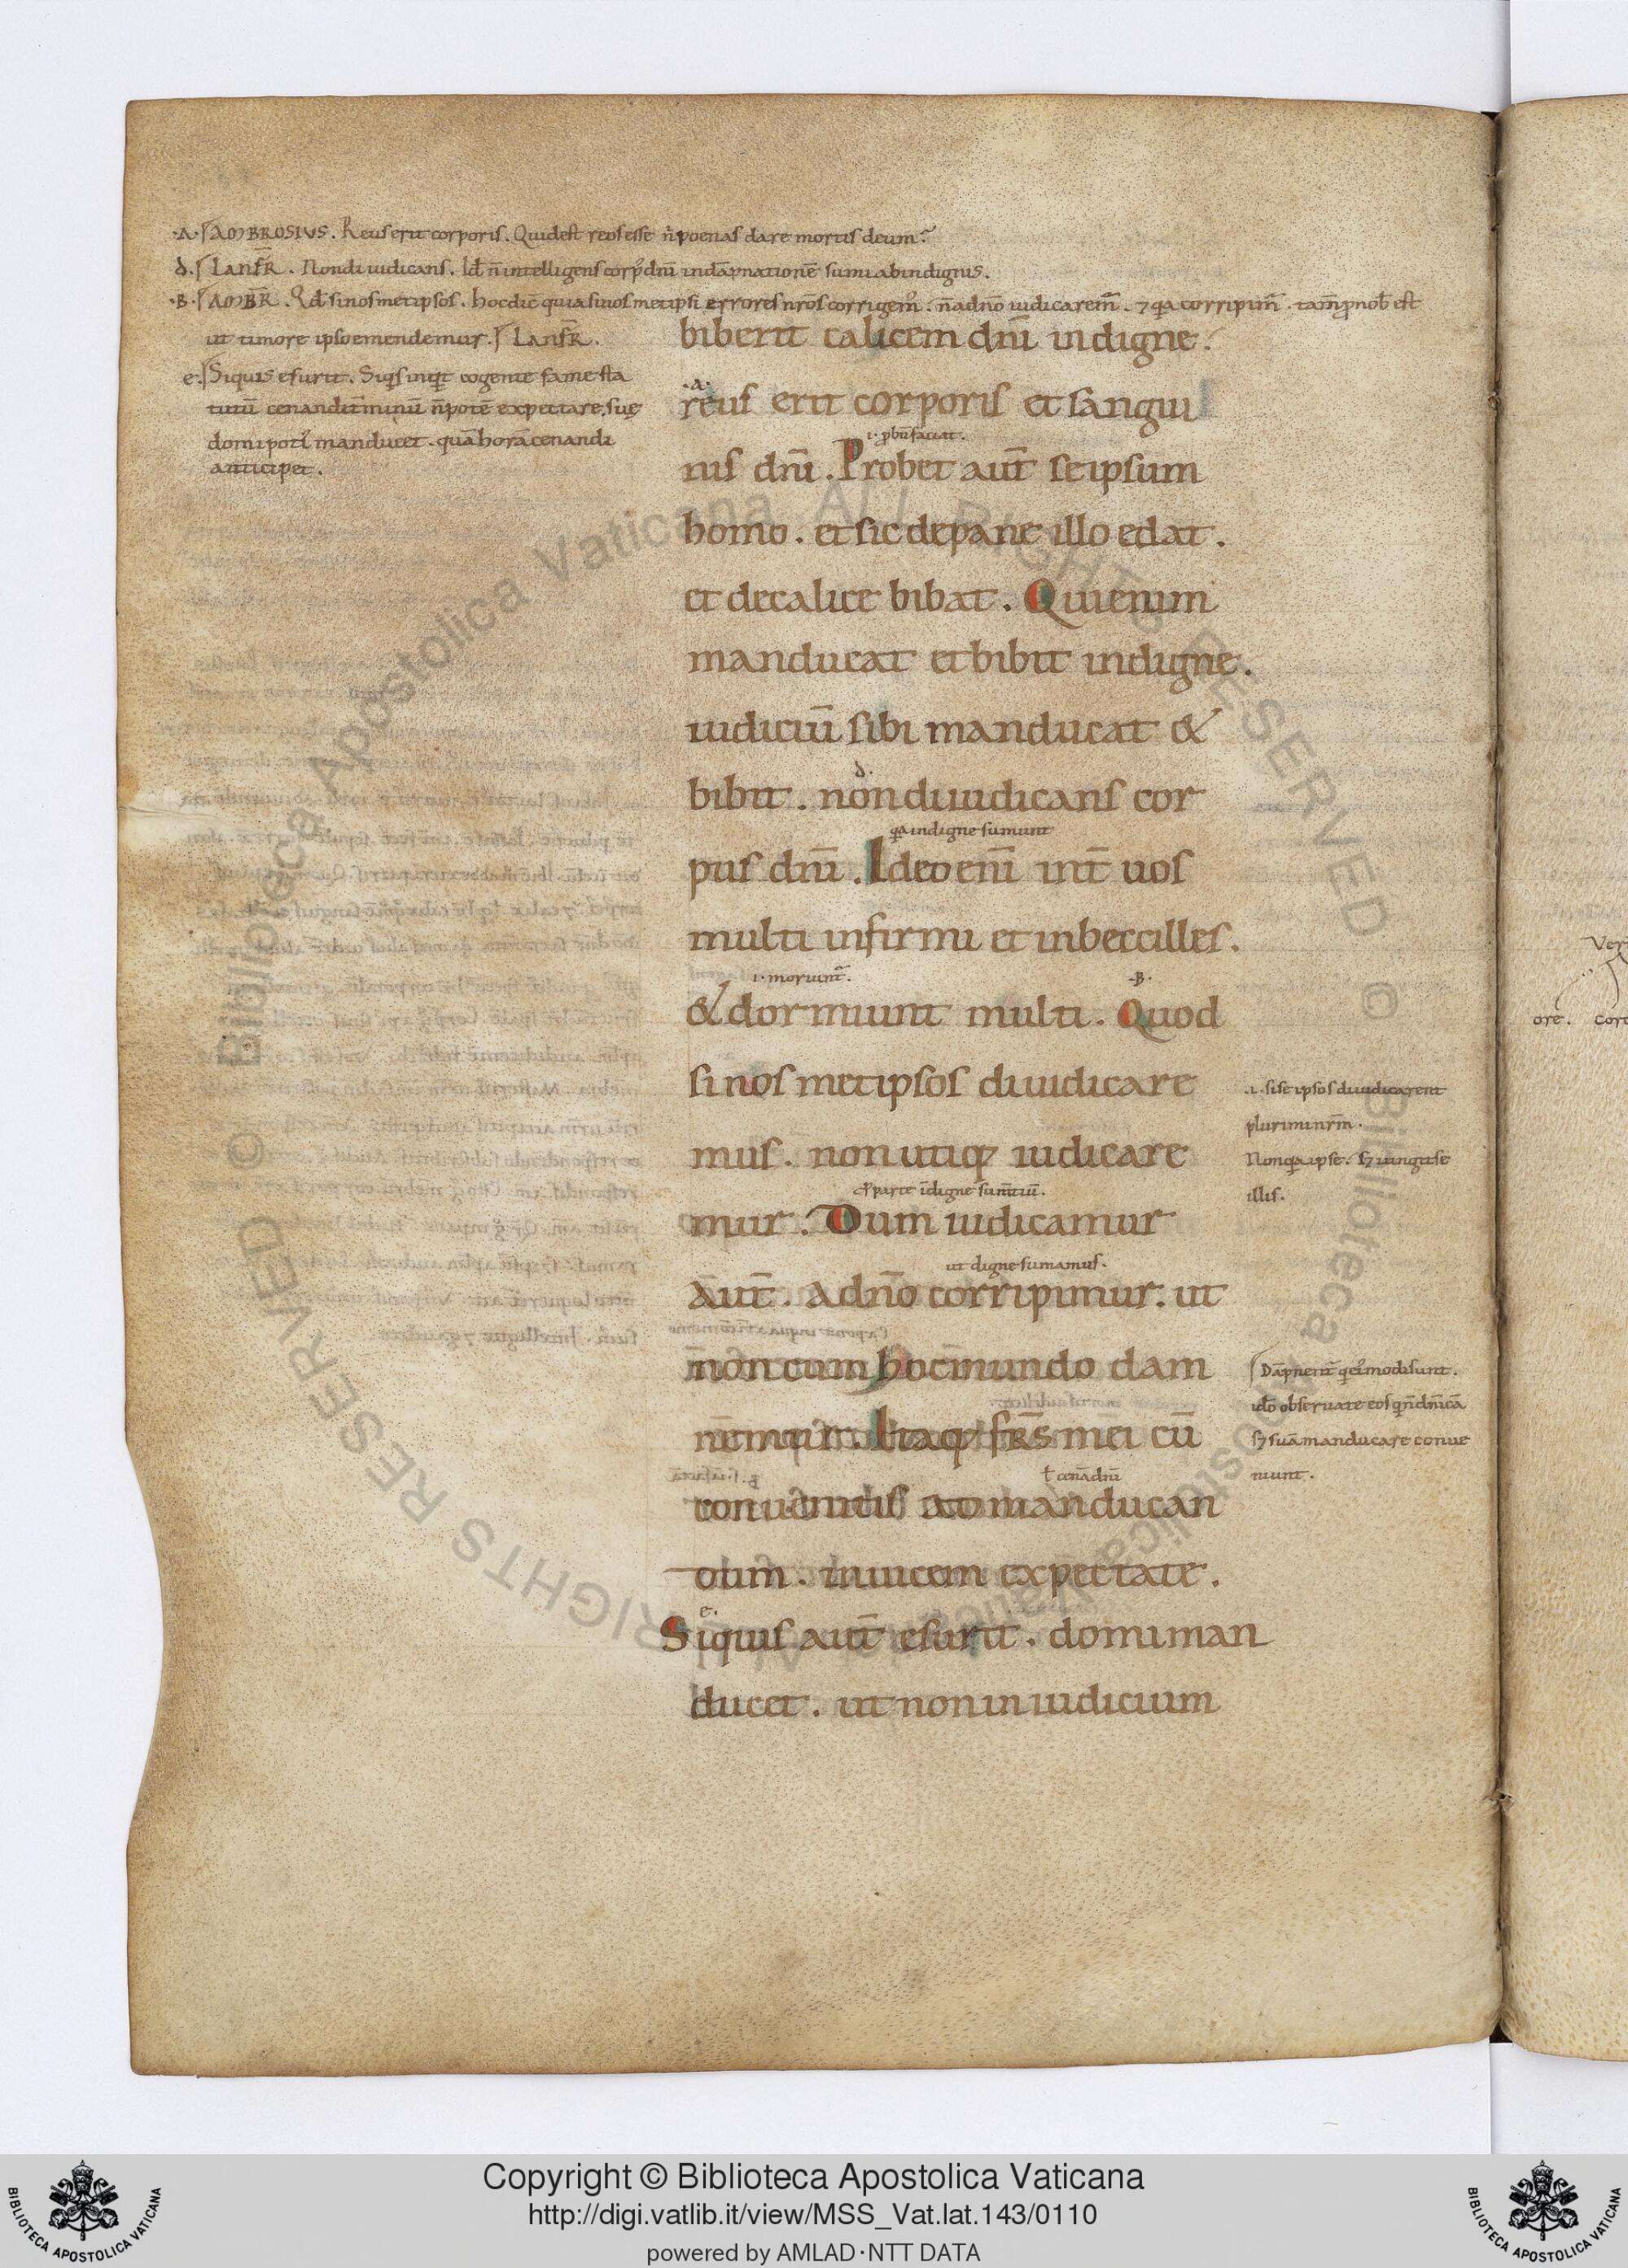 .A. AMBROSIUS. Reus erit corporis. Quid est reos esse n̄ poenas dare mortis deum?
d. LANFR̄. Non diiudicans. Id ÷ n̄ intelligens corpꝰ dn̄i in dāpnationē sumi ab indignis.
.B. AMBR̄. Qd si nosmetipsos. hoc dic̄ quia si nosmetipsi errores nr̄os corrigemꝰ. n̄ a dn̄o iudicarem̄. ⁊ qa corripim̄. tam̄ ꝓ nob̄ est
ut timore ipso emendemur. LANFR̄.
e. Siquis esurit. Siqis inqit cogente fame sta
tutū cenandi t̄minū n̄ potē expectare, suę
domi potꝰ manducet. quā horā cenandi
anticipet.
biberit calicem dn̄i indigne.
.a.
reus erit corporis et sangui
.i. ꝓbū faciat.
nis dn̄i. Probet aut̄ seipsum
homo. et sic de pane illo edat.
et de calice bibat. Qui enim
manducat et bibit indigne.
iudiciū sibi manducat &
d.
bibit. non diiudicans cor
qa indigne sumunt
pus dn̄i. Ideo eni̅ int̄ uos
multi infirmi et inbecilles.
.i. moriunt̄. .B.
& dormiunt multi. Quod
si nosmetipsos diiudicare
.i. si se ipsos diiudicarent
plurimi nr̄m.
mus. non utiqȝ iudicare
Non qa ipse. sȝ iungit se
illis.
ꝓ parte īdigne sum̄tiū.
mur. Dum iudicamur
ut digne sumamus.
aut̄. a dn̄o corripimur. ut
non cum hoc mundo dam
Dāpnent̄ qi eiꝰmodi sunt.
nemur. Itaqȝ fr̄s mei cū
ido obseruate eos qi n̄ dn̄icā
sȝ suā manducare conue
niunt.
ł cenā dn̄i
conuenitis ad manducan
dum. inuicem expectate.
e.
Siquis aut̄ esurit. domi man
ducet. ut non in iudicium
Ver
ore. cor
Copyright © Biblioteca Apostolica Vaticana
http://digi.vatlib.it/view/MSS_Vat.lat.143/0110
powered by AMLAD·NTT DATA
BIBLIOTECA APOSTOLICA VATICANA
BIBLIOTECA APOSTOLICA VATICANA
© Biblioteca Apostolica Vaticana ALL RIGHTS RESERVED © Biblioteca Apostolica Vaticana ALL RIGHTS RESERVED